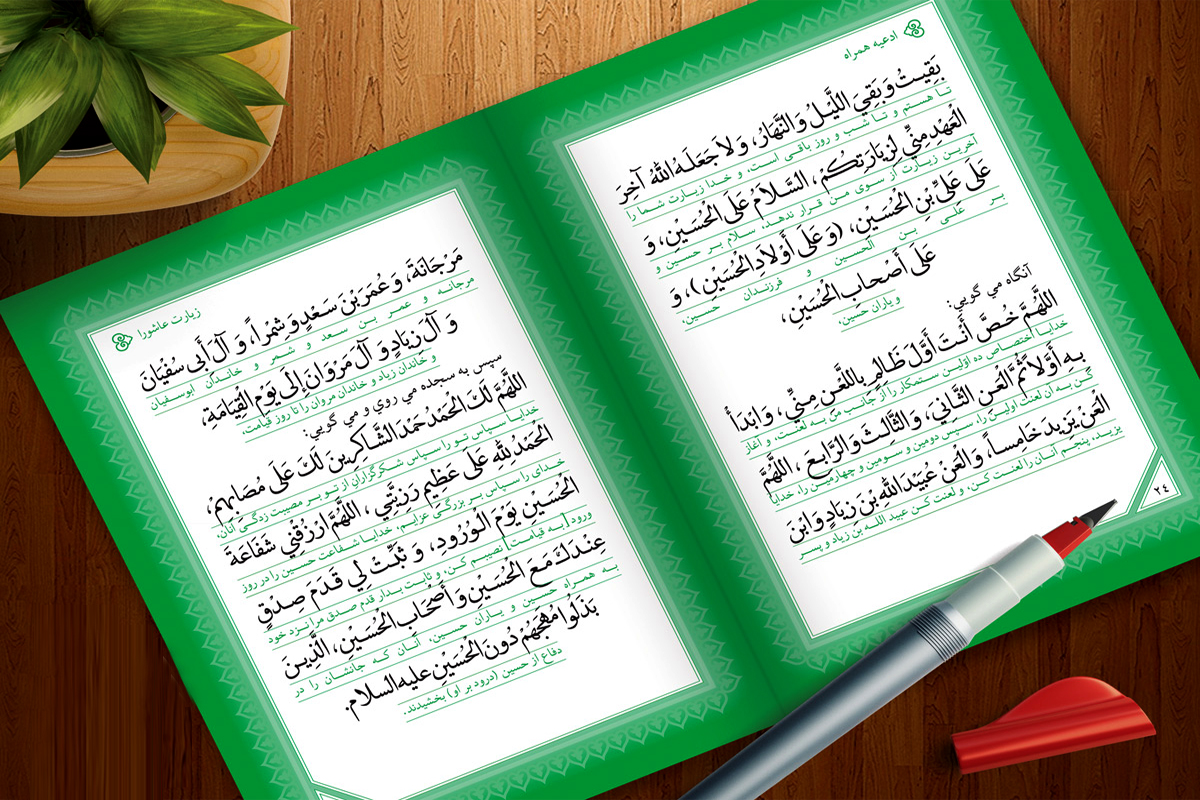 ادعیه همراه
بَقیتُ وَ بَقِیَ اللَّیْلُ وَ النَّهارُ، وَ لاَ جَعَلَهُ اللهُ آخِرَ
تا هستم و تا شب و روز باقی است، و خدا زیارت شما را
الْعَهْدِ مِنّي لِزِیارَتِکُمْ، السَّلامُ عَلَی الْحُسَیْنِ، وَ
آخرین زیارت از سوی من قرار ندهد، سلام بر حسین و
عَلَی عَلِيِّ بْنِ الْحُسَیْنِ، (وَ عَلَی أَوْلادِ الْحُسَیْنِ)، وَ
بر علی بن الحسین و فرزندان حسین،
عَلَی أَصْحابِ الْحُسَیْنِ،
و یاران حسین،
آنگاه می گویی:
اللَّهُمَّ خُصَّ أَنْتَ أَوَّلَ ظالِمٍ بِاللَّعْنِ مِنّي، وَ ابْدَأْ
خدایا اختصاص ده اوّلین ستمکار را از جانب من به لعنت، و آغاز
بِهِ أَوَّلاً ثُمَّ الْعَنِ الثّانيَ، وَ الثّالِثَ وَ الرّابِعَ، اللَّهُمَّ
کن به آن لعنت اولین را، سپس دومین و سومین و چهارمین را، خدایا
الْعَنْ یَزیدَ خامِساً، وَ الْعَنْ عُبَیْدَ اللهِ بْنَ زِیادٍ وَ ابْنَ
یزید، پنجم آنان را لعنت کن، و لعنت کن عبید الله بن زیاد و پسر
٢٤
زیارت عاشورا
مَرْجانَةَ، وَ عُمَرَ بْنَ سَعْدٍ وَ شِمْراً، وَ آلَ أَبی سُفْیانَ
مرجانه و عمر بن سعد و شمر و خاندان ابوسفیان
وَ آلَ زِیادٍ وَ آلَ مَرْوانَ إِلَی یَوْمِ الْقِیامَةِ،
و خاندان زیاد و خاندان مروان را تا روز قیامت.
سپس به سجده می روی و می گویی:
اللَّهُمَّ لَكَ الْحَمْدُ حَمْدَ الشّاکِرینَ لَكَ عَلَی مُصابِهِمْ،
خدایا سپاس تو را سپاس شکرگزاران از تو بر مصیبت زدگی آنان،
الْحَمْدُ للهِ عَلَی عَظیمِ رَزِیَّتي، اللَّهُمَّ ارْزُقْني شَفاعَةَ
خدای را سپاس بر بزرگی عزایم، خدایا شفاعت حسین را در روز
الْحُسَیْنِ یَوْمَ الْوُرُودِ، وَ ثَبِّتْ لي قَدَمَ صِدْقٍ
ورود [به قیامت] نصیبم کن، و ثابت بدار قدم صدق مرا نزد خود
عِنْدَكَ مَعَ الْحُسَیْنِ وَ أَصْحابِ الْحُسَیْنِ، الَّذینَ
به همراه حسین و یاران حسین، آنان که جانشان را در
بَذَلُوا مُهَجَهُمْ دُونَ الْحُسَیْنِ علیه السلام.
دفاع از حسین (درود بر او) بخشیدند.